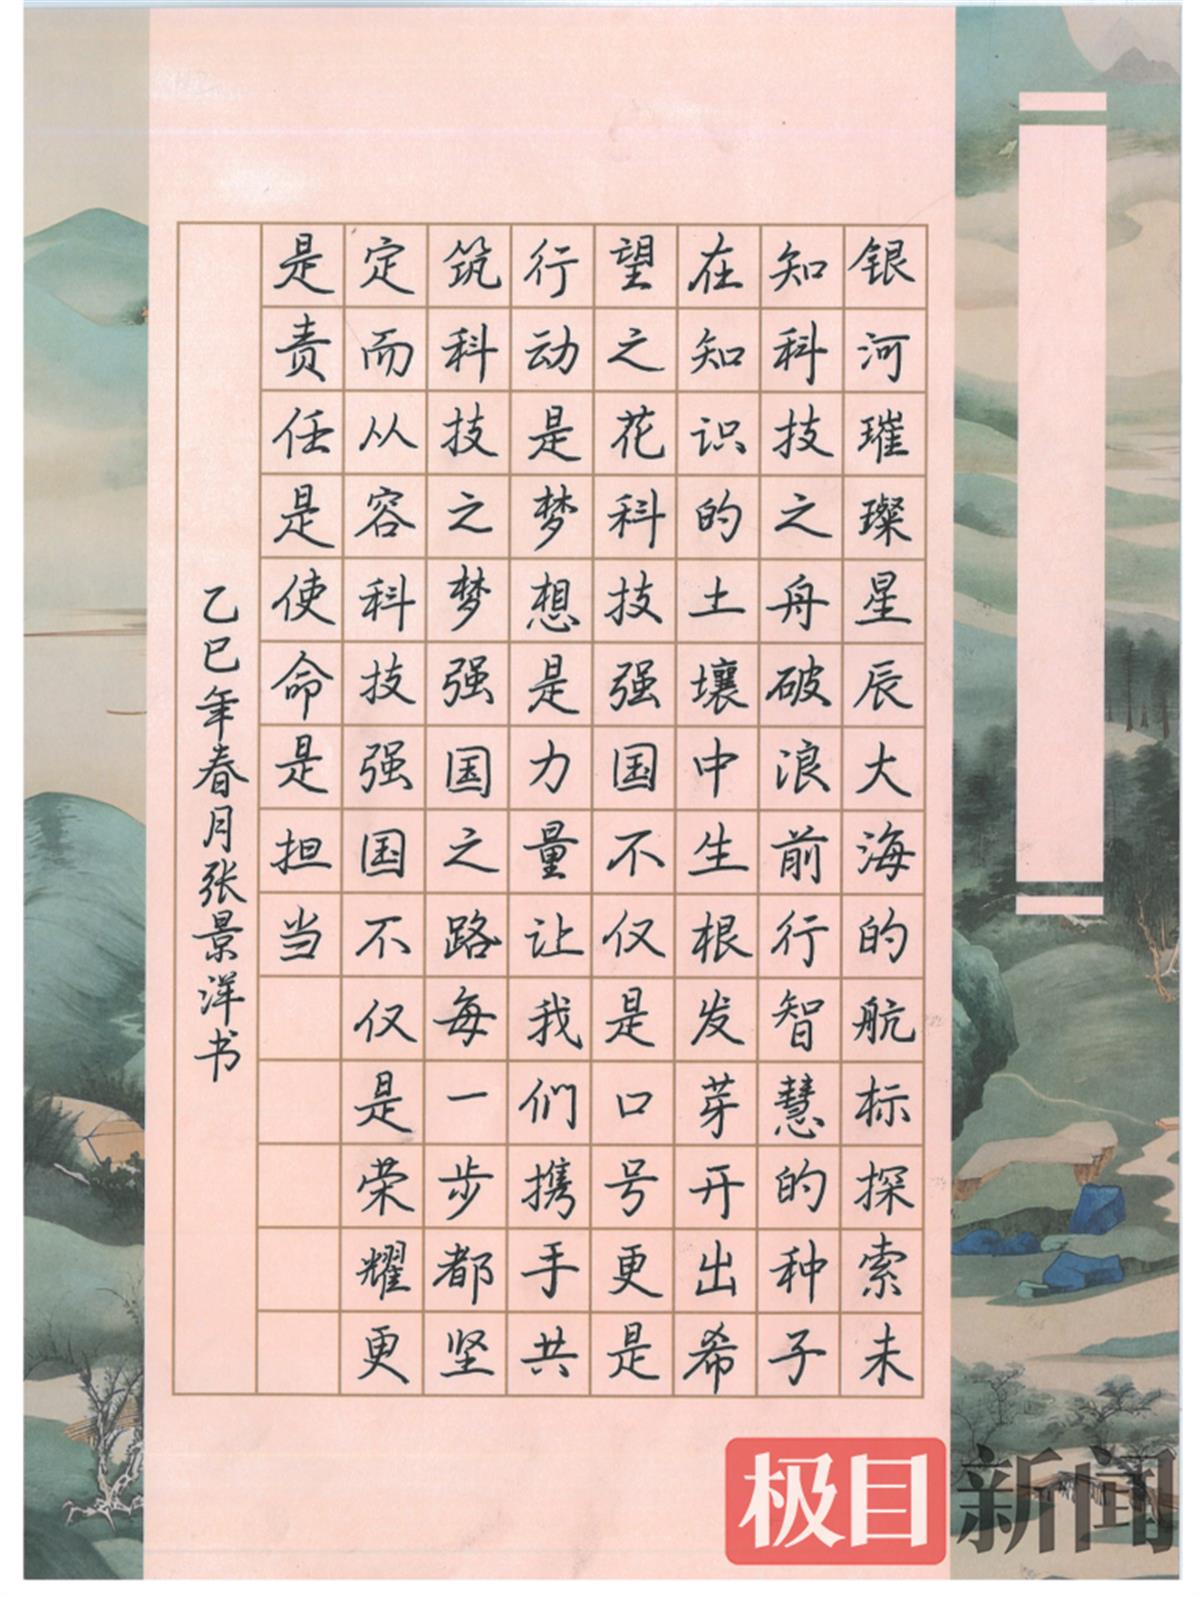 银河璀璨星辰大海的航标探索未
知科技之舟破浪前行智慧的种子
在知识的土壤中生根发芽开出希
望之花科技强国不仅是口号更是
行动是梦想是力量让我们携手共
筑科技之梦强国之路每一步都坚
定而从容科技强国不仅是荣耀更
是责任是使命是担当
乙巳年春月张景洋书
极目新闻